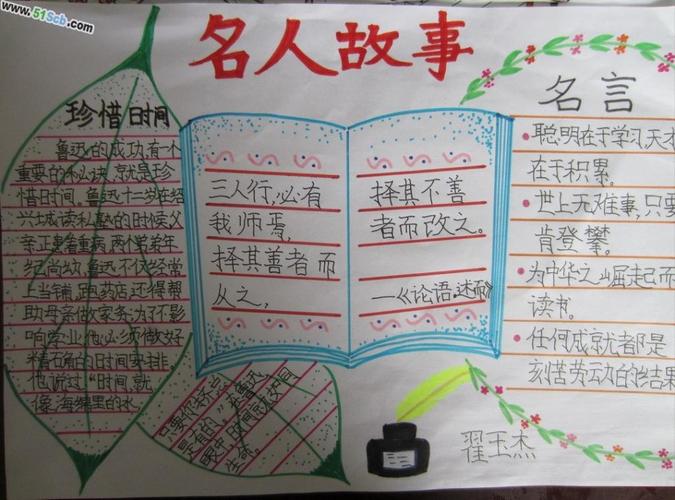 www.51Scb.com
名人故事
珍惜时间
鲁迅的成功,有一个
重要的秘诀,就是珍
惜时间。鲁迅十二岁在绍
兴城读私塾的时候,父
亲正患着重病,两个弟弟年
纪尚幼,鲁迅不仅经常
上当铺,跑药店,还得帮
助母亲做家务,为了不影
响学业,他必须做好
精确的时间安排。
他说过:“时间,就
像海绵里的水,
只要你挤,
是有的”在鲁迅
眼中,时间就如同
生命。
三人行,必有
我师焉,
择其善者而
从之,
择其不善
者而改之。
—《论语·述而》
名言
聪明在于学习,天才
在于积累。
世上无难事,只要
肯登攀。
为中华之崛起而
读书。
任何成就都是
刻苦劳动的结果
翟玉杰